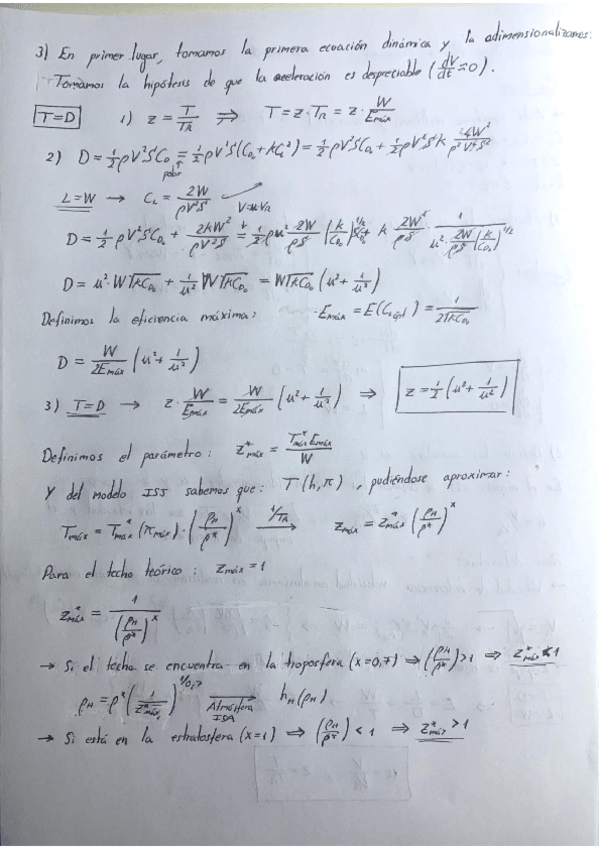 3) En primer lugar, tomamos la primera ecuación dinámica y la adimensionalizamos:
Tomamos la hipótesis de que la aceleración es despreciable (dV/dt ≈ 0).
T=D 1) z = T/T_R ⟹ T = z·T_R = z·W/E_máx
2) D = 1/2 ρV²S C_D = 1/2 ρV²S (C_D₀ + kC_L²) = 1/2 ρV²S C_D₀ + 1/2 ρV²S k 4W²/(ρ²V⁴S²)
polar
L=W → C_L = 2W/(ρV²S)
V=u·V_R
D = 1/2 ρV²S C_D₀ + 2kW²/(ρV²S) = 1/2 ρu² 2W/(ρS) (k/C_D₀)^1/2 S C_D₀ + k 2W²/(ρS) · 1/(u² · 2W/(ρS) (k/C_D₀)^1/2)
D = u²·W√(kC_D₀) + 1/u² W√(kC_D₀) = W√(kC_D₀) (u² + 1/u²)
Definimos la eficiencia máxima: E_máx = E(C_L opt) = 1/(2√(kC_D₀))
D = W/(2E_máx) (u² + 1/u²)
3) T=D → z·W/E_máx = W/(2E_máx) (u² + 1/u²) ⟹ z = 1/2 (u² + 1/u²)
Definimos el parámetro: z*_máx = T*_máx E_máx / W
Y del modelo ISJ sabemos que: T(h,π), pudiéndose aproximar:
T_máx = T*_máx (π_máx) · (ρ_H/ρ*)^x —1/T_R→ z_máx = z*_máx (ρ_H/ρ*)^x
Para el techo teórico: z_máx = 1
z*_máx = 1/(ρ_H/ρ*)^x
→ Si el techo se encuentra en la troposfera (x=0,7) ⟹ (ρ_H/ρ*) > 1 ⟹ z*_máx < 1
ρ_H = ρ* (1/z*_máx)^1/0,7 —Atmósfera ISA→ h_H (ρ_H)
→ Si está en la estratosfera (x=1) ⟹ (ρ_H/ρ*) < 1 ⟹ z*_máx > 1